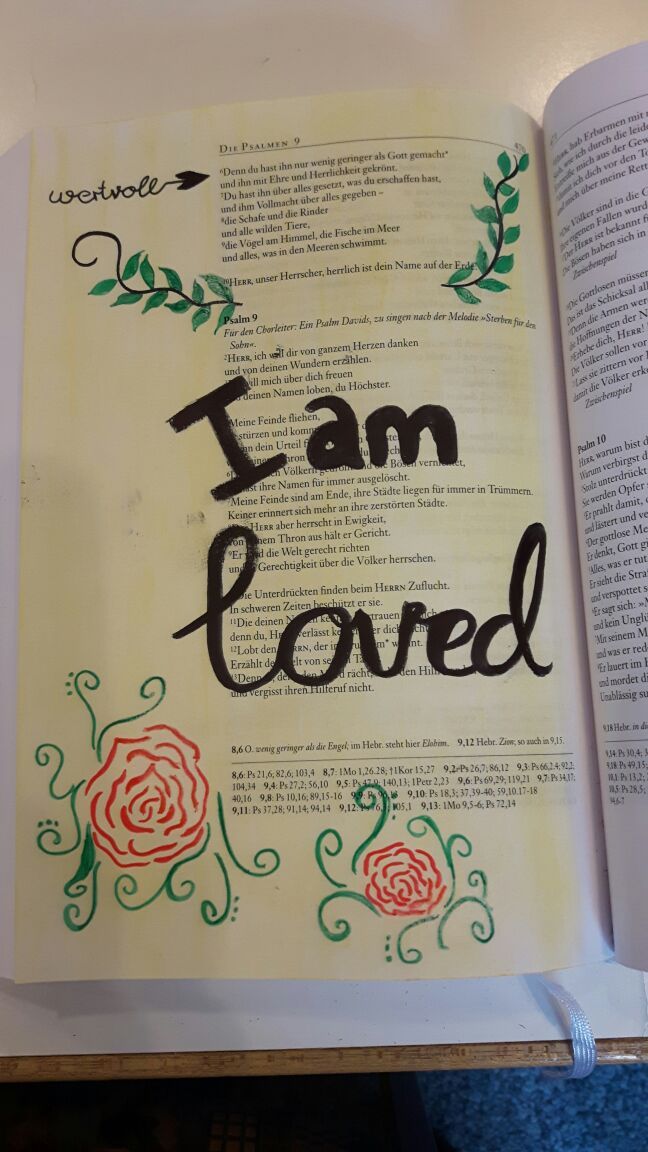 DIE PSALMEN 9
476
wertvoll
⁶Denn du hast ihn nur wenig geringer als Gott gemacht*
und ihn mit Ehre und Herrlichkeit gekrönt.
⁷Du hast ihn über alles gesetzt, was du erschaffen hast,
und ihm Vollmacht über alles gegeben –
⁸die Schafe und die Rinder
und alle wilden Tiere,
⁹die Vögel am Himmel, die Fische im Meer
und alles, was in den Meeren schwimmt.
¹⁰HERR, unser Herrscher, herrlich ist dein Name auf der Erde
Psalm 9
Für den Chorleiter: Ein Psalm Davids, zu singen nach der Melodie »Sterben für den
Sohn«.
²HERR, ich will dir von ganzem Herzen danken
und von deinen Wundern erzählen.
will mich über dich freuen
deinen Namen loben, du Höchster.
I am
Meine Feinde fliehen,
stürzen und
dein Urteil
Völkern gedroht und die Bösen vernichtet,
ihre Namen für immer ausgelöscht.
⁷Meine Feinde sind am Ende, ihre Städte liegen für immer in Trümmern.
Keiner erinnert sich mehr an ihre zerstörten Städte.
HERR aber herrscht in Ewigkeit,
von seinem Thron aus hält er Gericht.
⁹Er wird die Welt gerecht richten
und Gerechtigkeit über die Völker herrschen.
loved
Die Unterdrückten finden beim HERRN Zuflucht.
In schweren Zeiten beschützt er sie.
¹¹Die deinen
denn du, verlässt
¹²Lobt den der in
Erzählt
und vergisst ihren Hilferuf nicht.
8,6 O. wenig geringer als die Engel; im Hebr. steht hier Elohim. 9,12 Hebr. Zion; so auch in 9,15.
8,6: Ps 21,6; 82,6; 103,4 8,7: 1Mo 1,26.28; †1Kor 15,27 9,2: Ps 26,7; 86,12 9,3: Ps 66,2.4; 92,2;
104,34 9,4: Ps 27,2; 56,10 9,5: Ps 47,9; 140,13; 1Petr 2,23 9,6: Ps 69,29; 119,21 9,7: Ps 34,17;
40,16 9,8: Ps 10,16; 89,15-16 9,9: Ps 96,13 9,10: Ps 18,3; 37,39-40; 59,10.17-18
9,11: Ps 37,28; 91,14; 94,14 9,12: Ps 76,3; 105,1 9,13: 1Mo 9,5-6; Ps 72,14
HERR, hab Erbarmen mit
wie ich durch die leide
mich aus der Gew
dich vor den To
und mich über meine Rett
Die Völker sind in die G
eigenen Fallen wurd
Der HERR ist bekannt f
Die Bösen haben sich in
Zwischenspiel
Die Gottlosen müssen
ist das Schicksal all
Denn die Armen werd
die Hoffnungen der N
Erhebe dich, HERR!
Die Völker sollen vor
Lass sie zittern vor
damit die Völker erk
Zwischenspiel
Psalm 10
HERR, warum bist d
Warum verbirgst d
Stolz unterdrückt
Sie werden Opfer
Er prahlt damit,
und lästert und ve
Der gottlose Me
Er denkt, Gott gi
Alles, was er tut
Er sieht die Stra
und verspottet s
Er sagt sich: »M
und kein Unglü
Mit seinem M
und was er red
Er lauert im H
und mordet di
Unablässig su
9,18 Hebr. in die
9,14: Ps 30,4; 3
9,18: Ps 49,15;
10,1: Ps 13,2; 2